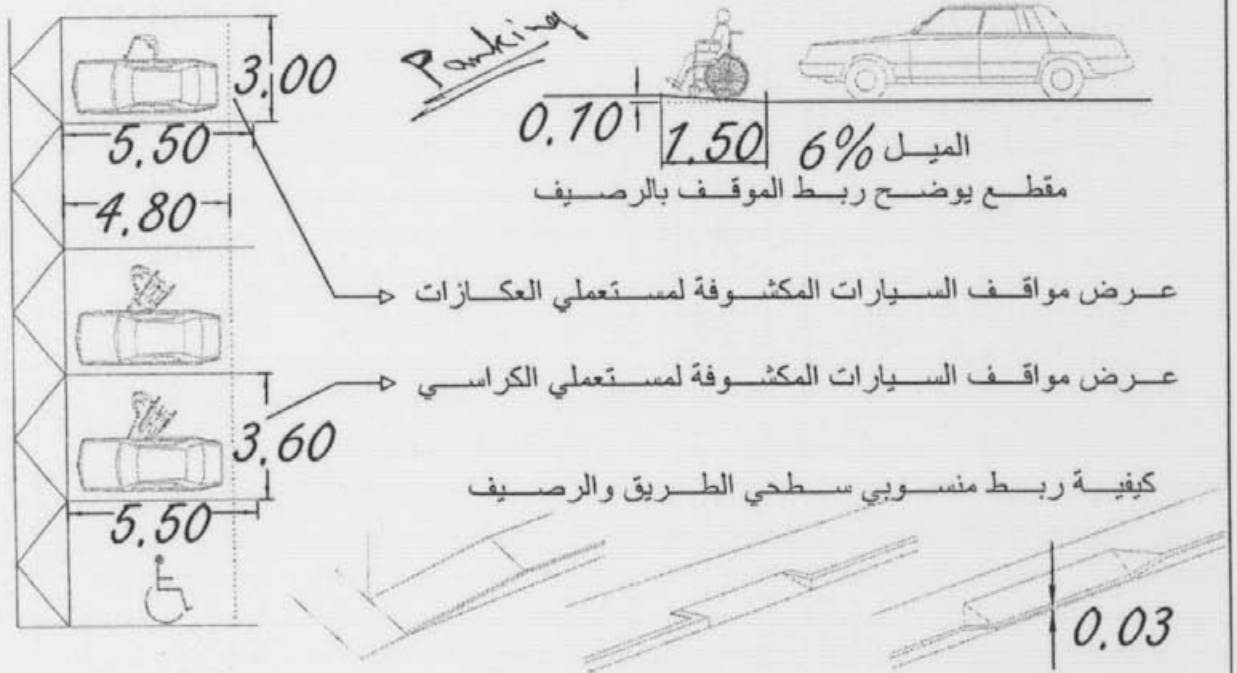 Parking
3.00
5.50
4.80
0.10
1.50
الميل 6%
مقطع يوضح ربط الموقف بالرصيف
عرض مواقف السيارات المكشوفة لمستعملي العكازات
عرض مواقف السيارات المكشوفة لمستعملي الكراسي
3.60
5.50
كيفية ربط منسوبي سطحي الطريق والرصيف
0.03